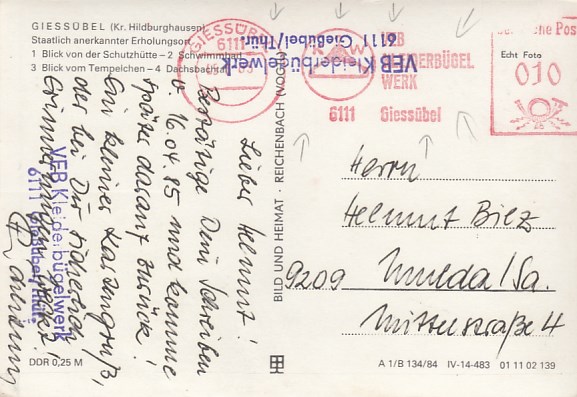 GIESSÜBEL (Kr. Hildburghausen)
Staatlich anerkannter Erholungsort
1 Blick von der Schutzhütte – 2 Schwimmbad
3 Blick vom Tempelchen – 4 Dachsbachtal
GIESSÜBEL
6111
VEB Kleiderbügelwerk
6111 Gießübel/Thür.
K W
VEB
KLEIDERBÜGEL
WERK
6111 Giessübel
Deutsche Post
Echt Foto
010
Lieber Helmut!
Bestätige Dein Schreiben
v. 16.04.85 und komme
später darauf zurück!
Ein kleiner Kartengruß,
der bei Dir sicherlich
Erinnerungen weckt!
VEB Kleiderbügelwerk
6111 Gießübel/Thür.
BILD UND HEIMAT · REICHENBACH (VOGTL)
Herrn
Helmut Bilz
9209 Mulda/Sa.
Mittelstraße 4
DDR 0,25 M
A 1/B 134/84 IV-14-483 01 11 02 139